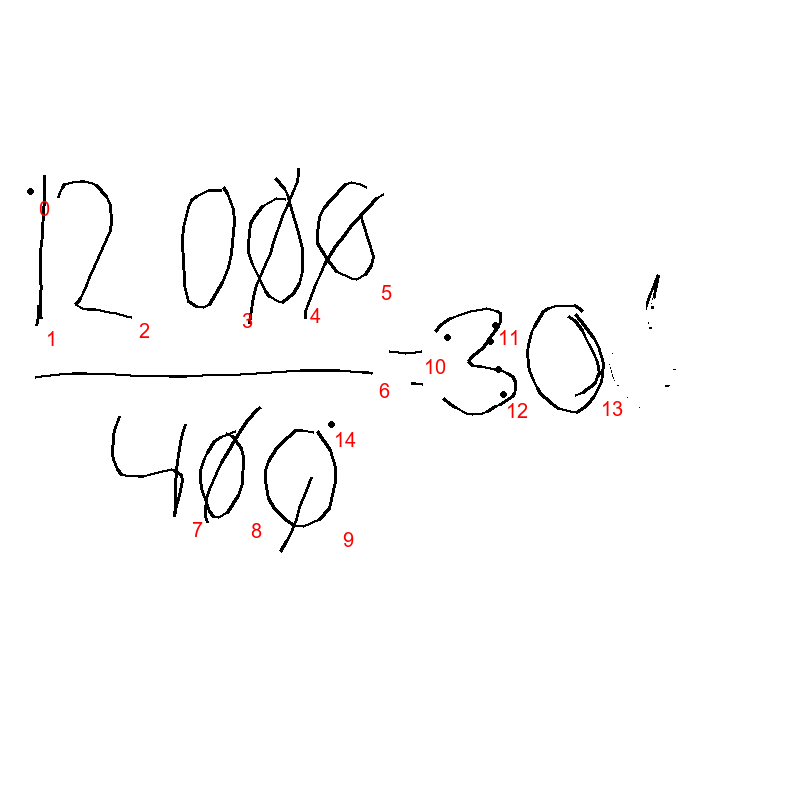 12 000
400
= 30
0
1
2
3
4
5
6
7
8
9
10
11
12
13
14